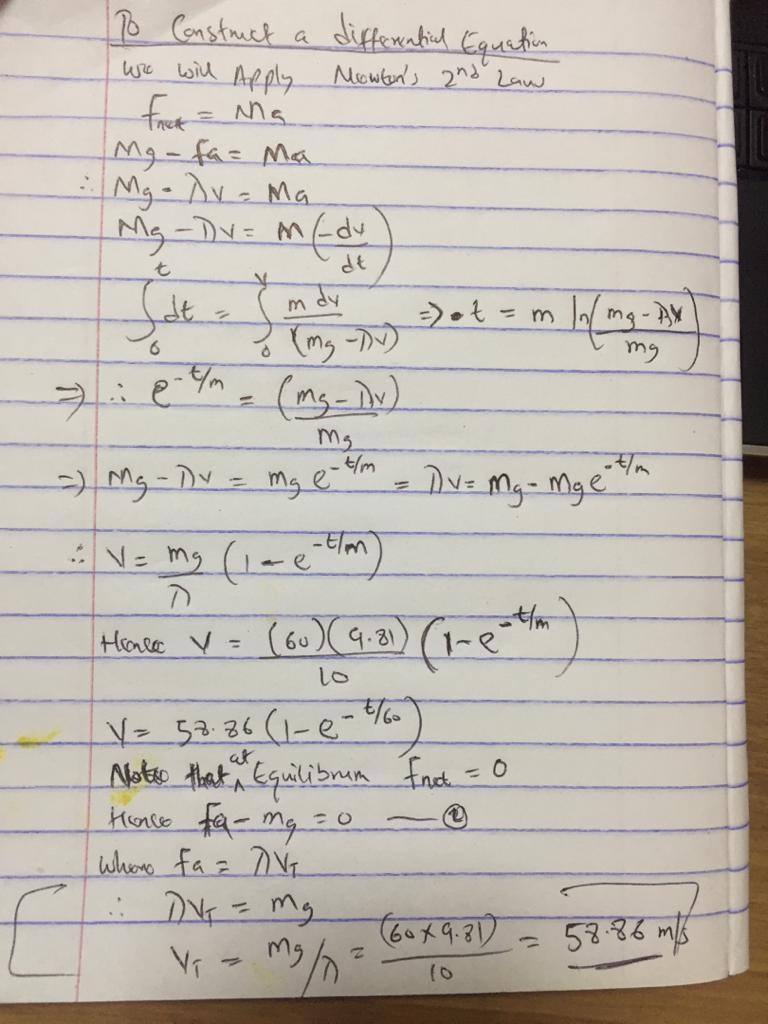 To Construct a differential Equation
we will Apply Newton's 2nd Law
Fnet = Ma
Mg - fa = Ma
∴ Mg - λv = Ma
Mg - λv = m(-dv/dt)
∫₀ᵗ dt = ∫₀ᵛ m dv/(mg - λv) => • t = m ln((mg - λv)/mg)
=> ∴ e^(-t/m) = (mg - λv)/mg
=> Mg - λv = mg e^(-t/m) = λv = Mg - Mge^(-t/m)
∴ V = mg/λ (1 - e^(-t/m))
Hence V = (60)(9.81)/10 (1 - e^(-t/m))
V = 58.86 (1 - e^(-t/60))
Note that at Equilibrum Fnet = 0
Hence fa - mg = 0 — ②
where fa = λV_T
∴ λV_T = mg
V_T = mg/λ = (60 x 9.81)/10 = 58.86 m/s